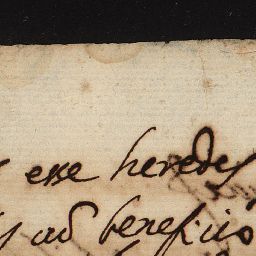 esse heredes
ad benefitio